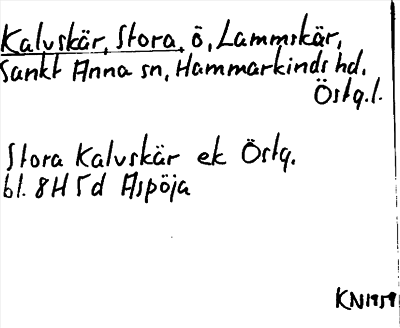 Kalvskär, Stora, ö, Lammskär,
Sankt Anna sn, Hammarkinds hd.
Östg.l.
Stora Kalvskär ek Östg.
bl. 8H 5d Aspöja
KN1959